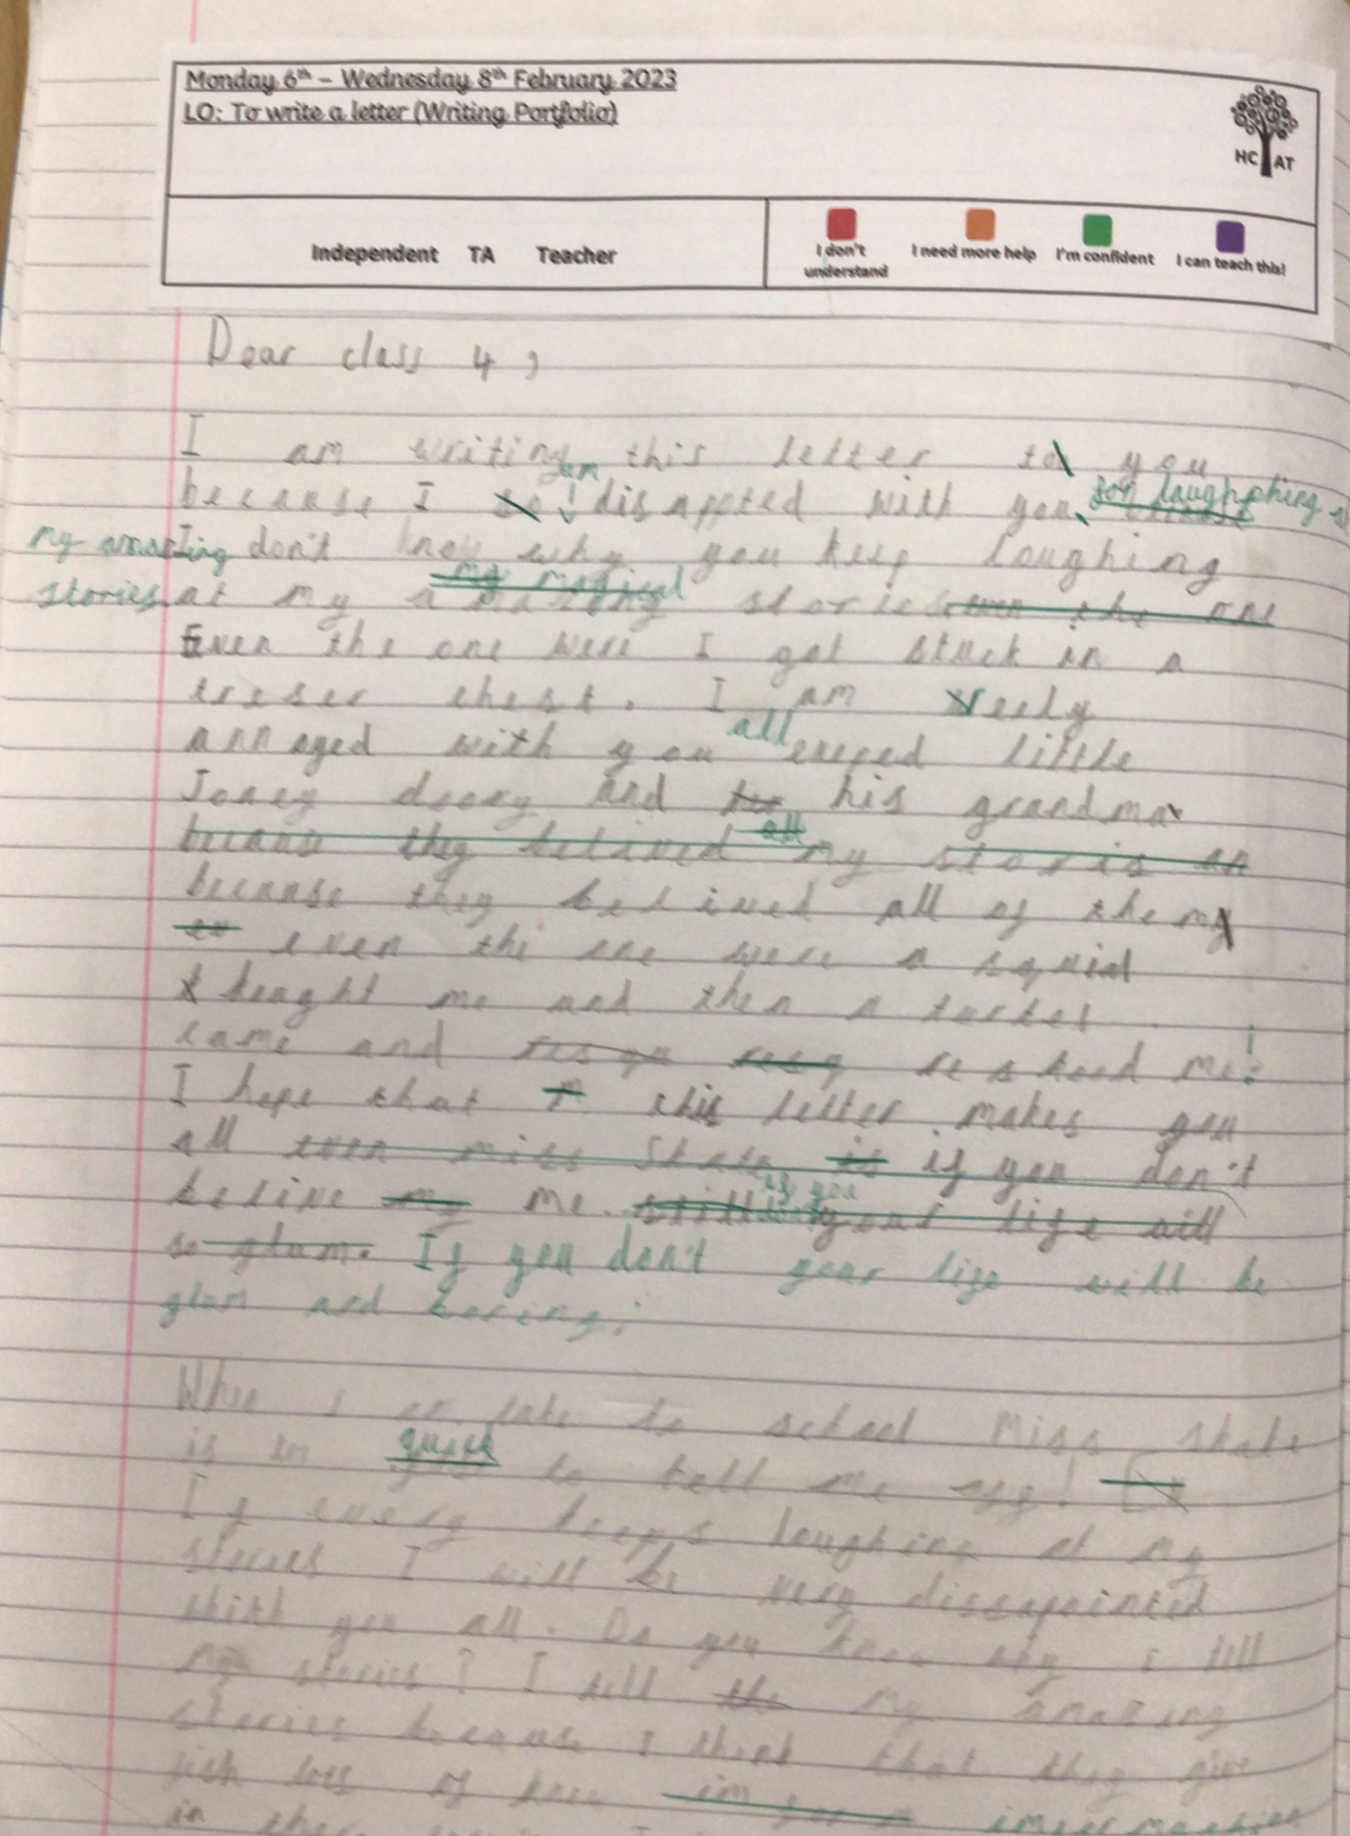 Monday 6th – Wednesday 8th February 2023
LO: To write a letter (Writing Portfolio)
HCAT
Independent TA Teacher
I don't understand
I need more help
I'm confident
I can teach this!
Dear class 4,
I am writing this letter to you
because I am disappted with you for laughphing at
my amazing stories.
I don't know why you keep loughing
at my my magical stories
Even the one were I got stuck in a
treser chest. I am Veely
annaged with you all exeped little
Joney deory and his grandma
because they betived all my storis an
because they belived all of them
even the one were a squial
thought me and then a turtel
came and reskued me!
I hope that this letter makes you
all even miss Skate if you don't
belive me. still if you your life will
so glum. If you don't your life will be
glum and boring.
When I am late to school Miss Skate
is to quick to tell me off!
If every keeps loughing at my
stories I will be very dissapointed
with you all. Do you know why i tell
my stories? I tell the my amazing
stories because I think that they give
lots of
in